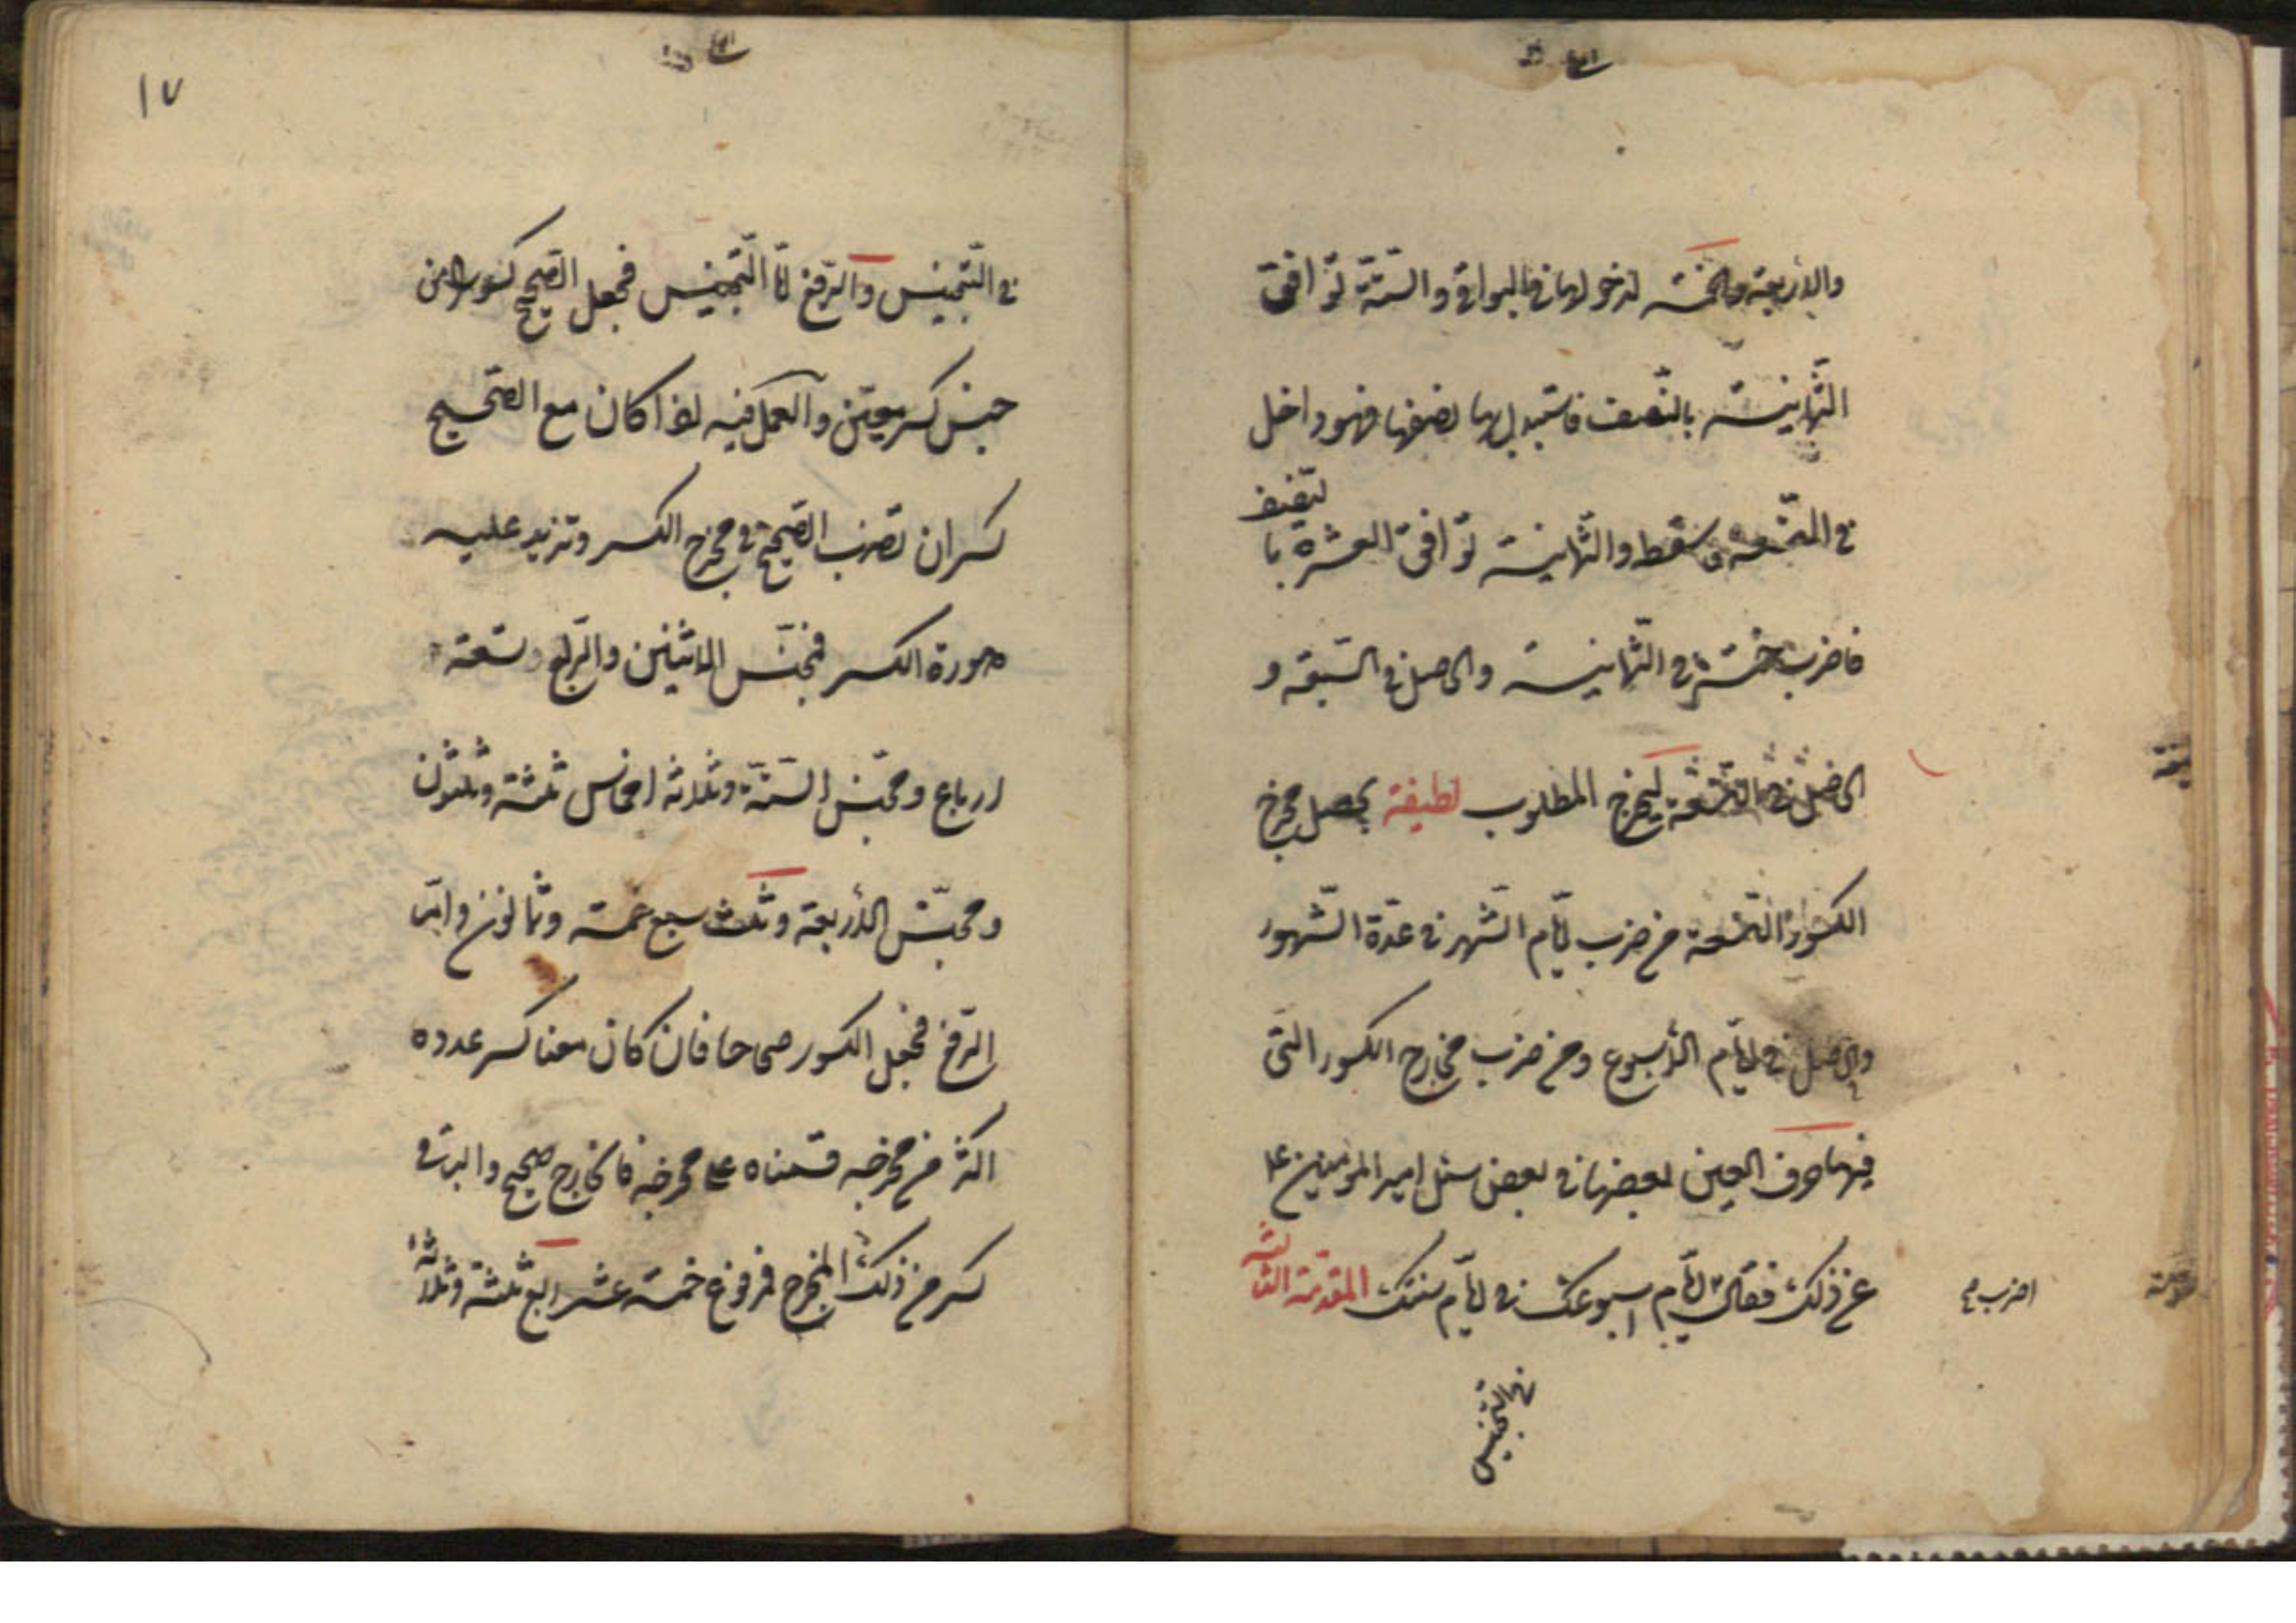 والأربعة والخمسة لدخولها في البواقي والستة توافق
الثمانية بالنصف فاستبدل بها نصفها فهو داخل
في التسعة فاسقط والثمانية توافق العشرة با
لتنصيف
فاضرب خمسة في الثمانية والحاصل في السبعة و
الحاصل في التسعة ليخرج المطلوب لطيفة يحصل مخرج
الكسور التسعة من ضرب ايّام الشهر في عدّة الشهور
والحاصل في ايّام الأسبوع ومن ضرب مخارج الكسور التى
فيها حرف العين بعضها في بعض سئل امير المؤمنين ع
عن ذلك فقال ايّام اسبوعك في ايّام سنتك المقدّمة الثالثة
اضرب
في التجنيس
١٧
في التّجنيس والرّفع امّا التّجنيس فجعل الصّحيح كسورا من
جنس كسر معيّن والعمل فيه اذا كان مع الصّحيح
كسر ان تضرب الصّحيح في مخرج الكسر وتزيد عليه
صورة الكسر فمجنّس الاثنين والرّبع تسعة
ارباع ومجنّس السّتّة وثلاثة اخماس ثلثة وثلثون
ومجنّس الأربعة وثلث سبع خمسة وثمانون وامّا
الرّفع فجعل الكسور صحاحا فان كان معنا كسر عدده
اكثر من مخرجه قسمناه على مخرجه فالخارج صحيح والباقي
كسر من ذلك المخرج فمرفوع خمسة عشر ربع ثلثة وثلاثة